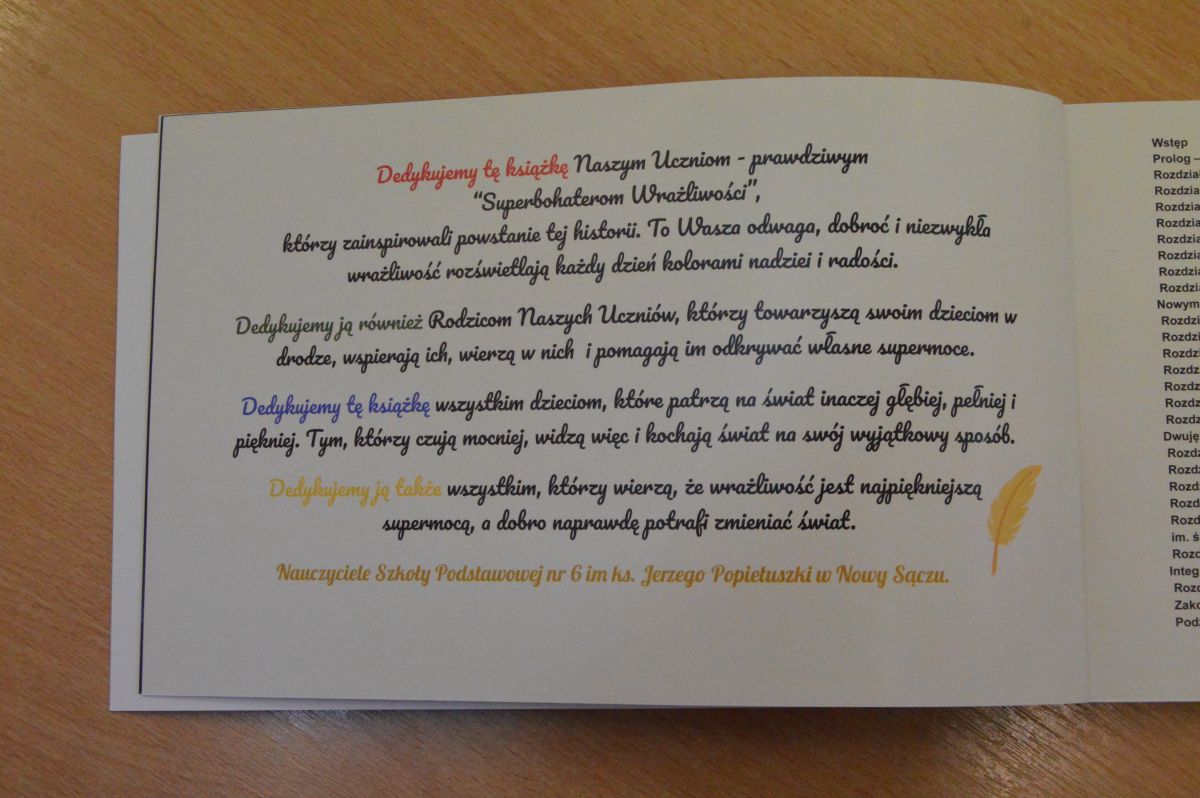 Dedykujemy tę książkę Naszym Uczniom - prawdziwym
“Superbohaterom Wrażliwości”,
którzy zainspirowali powstanie tej historii. To Wasza odwaga, dobroć i niezwykła
wrażliwość rozświetlają każdy dzień kolorami nadziei i radości.
Dedykujemy ją również Rodzicom Naszych Uczniów, którzy towarzyszą swoim dzieciom w
drodze, wspierają ich, wierzą w nich i pomagają im odkrywać własne supermoce.
Dedykujemy tę książkę wszystkim dzieciom, które patrzą na świat inaczej głębiej, pełniej i
piękniej. Tym, którzy czują mocniej, widzą więc i kochają świat na swój wyjątkowy sposób.
Dedykujemy ją także wszystkim, którzy wierzą, że wrażliwość jest najpiękniejszą
supermocą, a dobro naprawdę potrafi zmieniać świat.
Nauczyciele Szkoły Podstawowej nr 6 im ks. Jerzego Popiełuszki w Nowy Sączu.
Wstęp
Prolog –
Rozdział
Rozdzia
Rozdzia
Rozdzia
Rozdzia
Rozdzia
Rozdzia
Rozdzia
Nowym
Rozdzi
Rozdzi
Rozdzi
Rozdz
Rozdz
Rozdz
Rozdz
Dwuję
Rozdz
Rozdz
Rozdz
Rozd
Rozd
im. ś
Rozd
Integ
Rozd
Zako
Podz